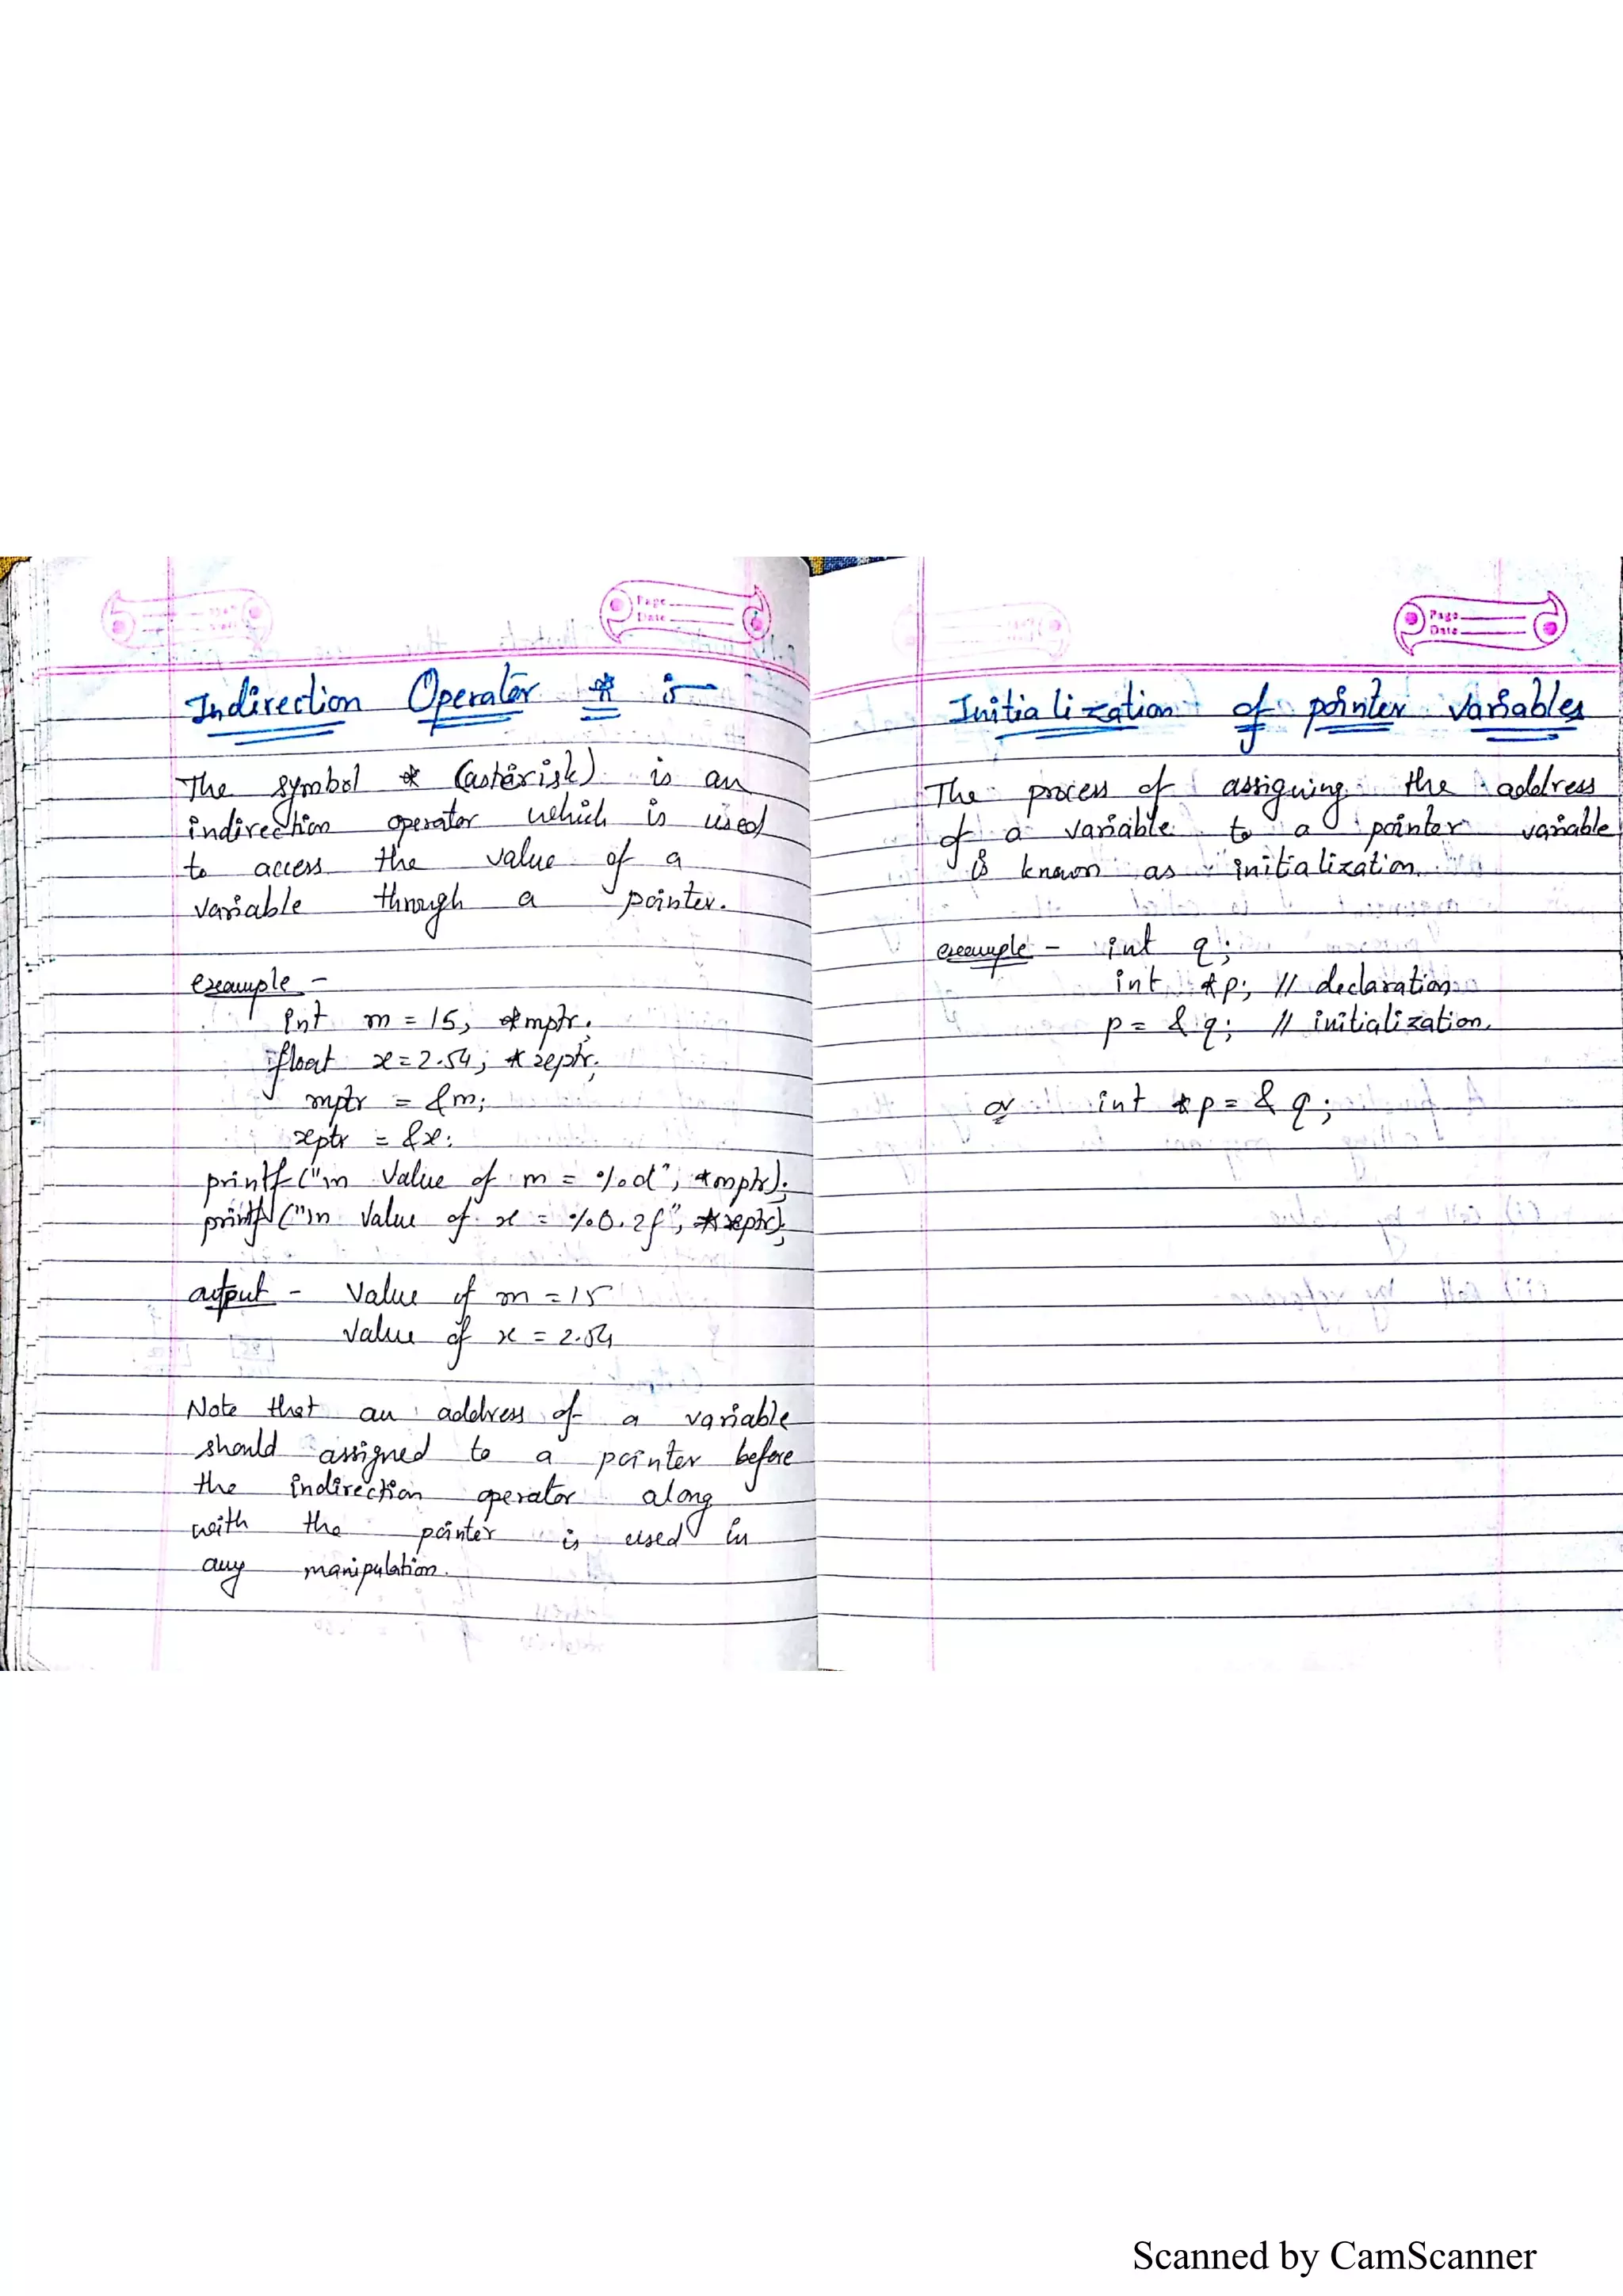 Page
Date
Indirection Operator * :-
The symbol * (asterisk) is an
indirection operator which is used
to access the value of a
variable through a pointer.
example -
int m = 15, *mptr;
float x = 2.54, *xptr;
mptr = &m;
xptr = &x;
printf("\n Value of m = %d", *mptr);
printf("\n Value of x = %0.2f", *xptr);
output - Value of m = 15
Value of x = 2.54
Note that an address of a variable
should assigned to a pointer before
the indirection operator along
with the pointer is used in
any manipulation.
Page
Date
Initialization of pointer variables
The process of assigning the address
of a variable to a pointer variable
is known as initialization.
example - int q;
int *p; // declaration
p = &q; // initialization.
or int *p = &q;
Scanned by CamScanner